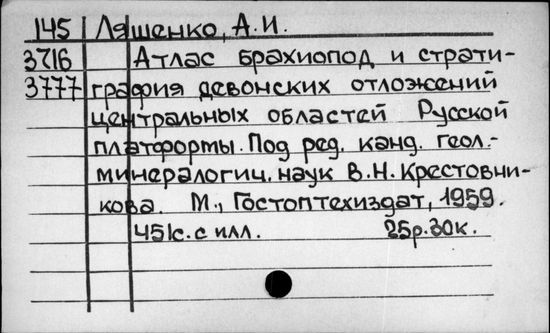 145 Ляшенко, А.И.
3716 Атлас брахиопод и страти-
3777 графия девонских отложений
центральных областей Русской
платформы. Под ред. канд. геол.-
минералогич. наук В.Н. Крестовни-
кова. М., Гостоптехиздат, 1959.
451с. с илл. 25р.30к.